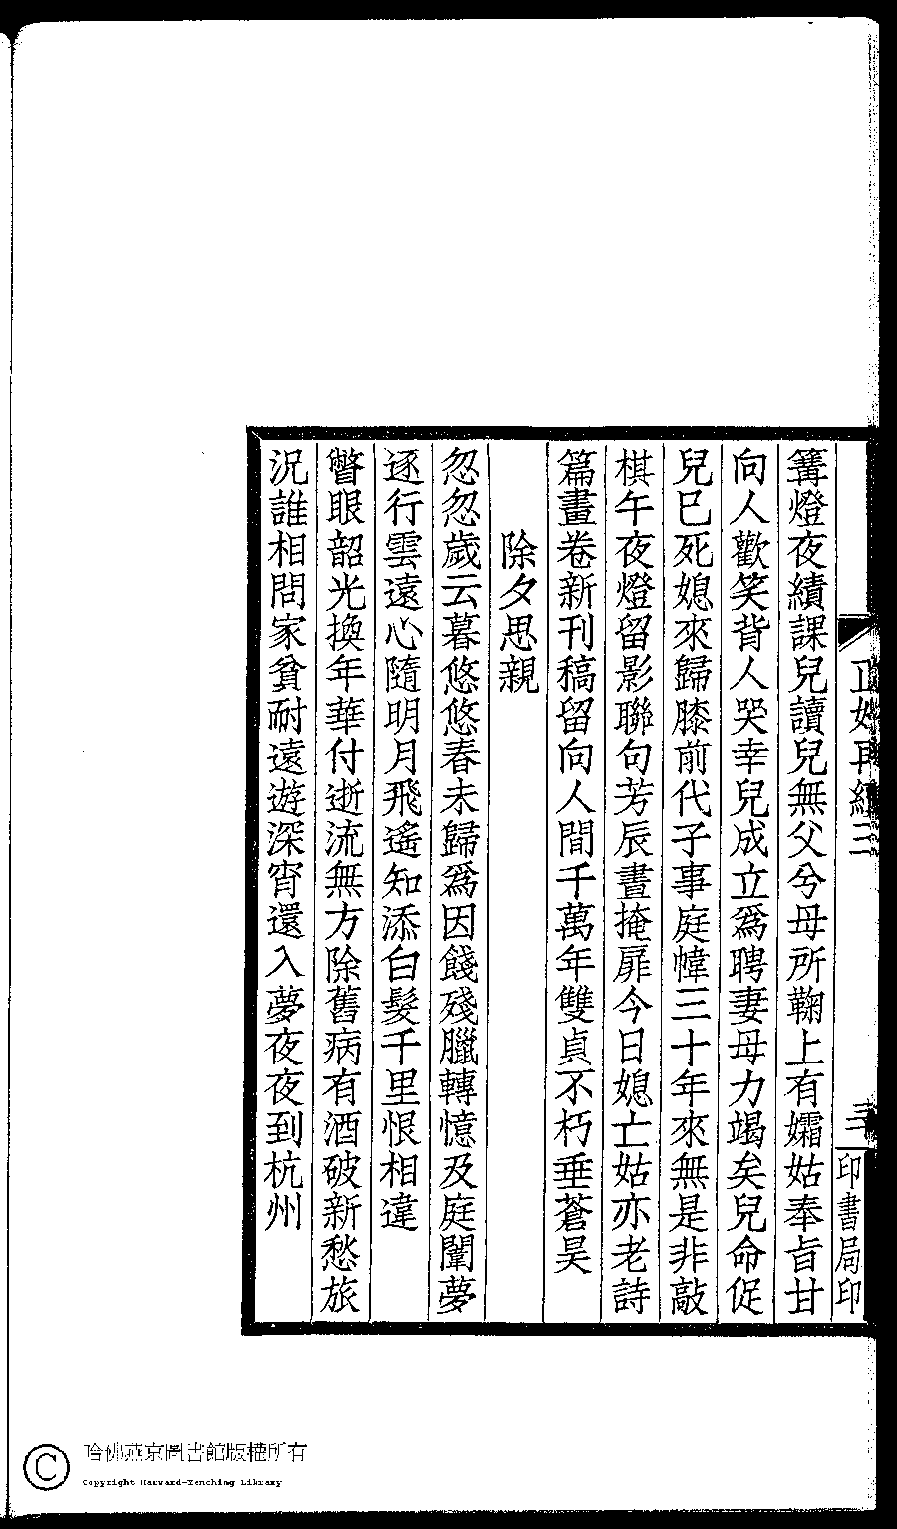 篝燈夜績課兒讀兒無父兮母所鞠上有孀姑奉旨甘
向人歡笑背人哭幸兒成立爲聘妻母力竭矣兒命促
兒已死媳來歸膝前代子事庭幃三十年來無是非敲
棋午夜燈留影聯句芳辰晝掩扉今日媳亡姑亦老詩
篇畫卷新刊稿留向人間千萬年雙貞不朽垂蒼昊
除夕思親
忽忽歲云暮悠悠春未歸爲因餞殘臘轉憶及庭闈夢
逐行雲遠心隨明月飛遙知添白髮千里恨相違
瞥眼韶光換年華付逝流無方除舊病有酒破新愁旅
況誰相問家貧耐遠遊深宵還入夢夜夜到杭州
正始再續三
三
印書局印
哈佛燕京圖書館版權所有
Copyright Harvard-Yenching Library